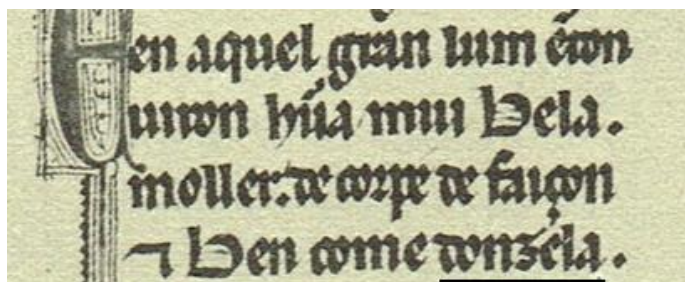 En aquel gran lum enton
uiron hũa mui bela.
moller. de corpe de faiçon
⁊ ben come donzela.